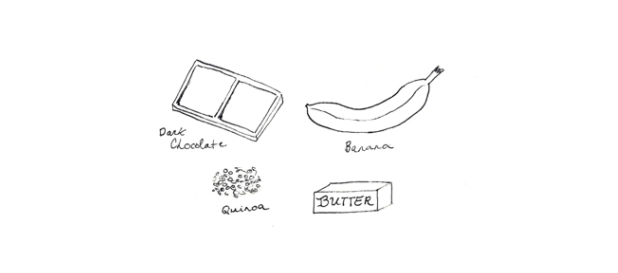 Dark
Chocolate
Banana
Quinoa
BUTTER